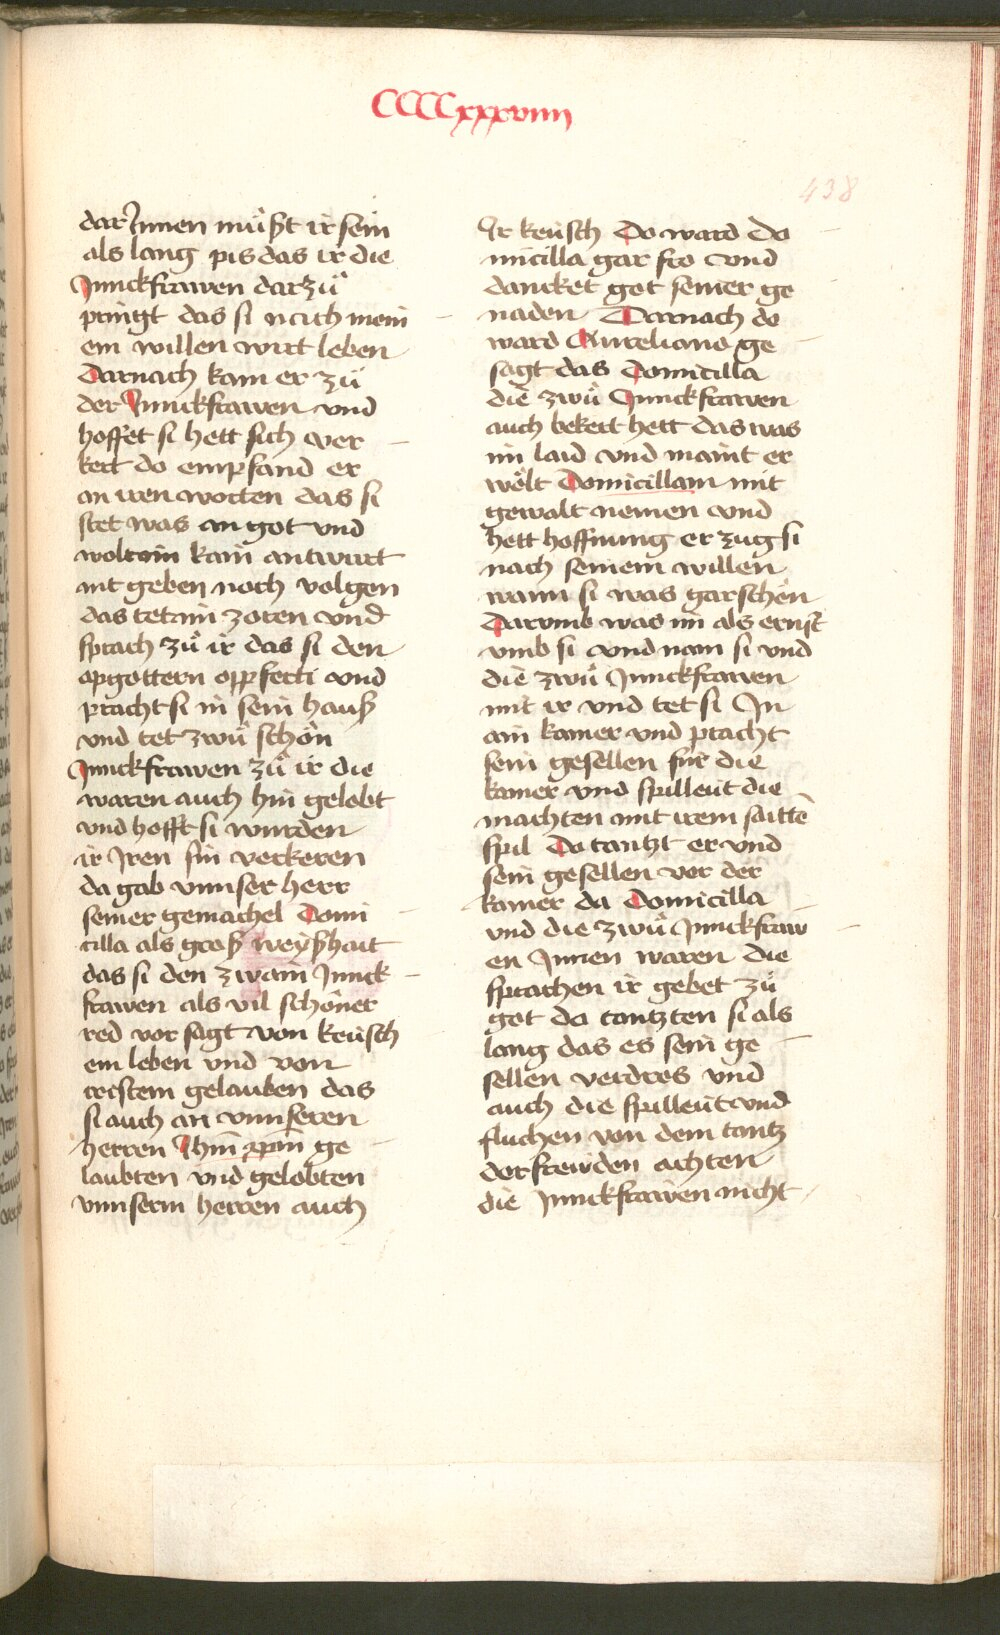 CCCCxxxviiii
438
darJnnen müßt ir sein
als lang pis das ir die
Junckfrawen darzuͦ
pringt das si nach mein
em willen wirt leben
Darnach kam er zuͦ
der Junckfrawen vnd
hoffet si hett sich ver
kert do empfand er
an iren worten das si
stet was an got vnd
wolt im kain antwurt
nit geben noch volgen
das tet im zoren vnd
sprach zuͦ ir das si den
apgottern opfferti vnd
pracht si in sein hauß
vnd tet zwuͦ schön
Junckfrawen zuͦ ir die
waren auch hin gelobt
vnd hofft si wurden
ir Jren sin verkeren
da gab vnnser herr
seiner gemachel Domi
cilla als groß weyßhait
das si den zwain Junck
frawen als vil schöner
red vor sagt von keüsch
em leben vnd von
cristem gelauben das
si auch an vnnseren
herren Jhm xpm ge
laubten vnd gelobten
vnnserm herren auch
Jr keüsch Do ward do
micilla gar fro vnd
dancket got seiner ge
naden Darnach do
ward Aureliano ge
sagt das Domicilla
die zwuͦ Junckfrawen
auch bekert hett das was
im laid vnd maint er
wölt Domicillam mit
gewalt nemen vnd
hett hoffnung er zug si
nach seinem willen
wann si was gar schön
Darvmb was im als ernst
vmb si vnd nam si vnd
die zwuͦ Junckfrawen
mit ir vnd tet si Jn
ain kamer vnd pracht
sein gesellen für die
kamer vnd spilleüt die
machten mit irem saittē
spil Do tantzt er vnd
sein gesellen vor der
kamer da Domicilla
vnd die zwuͦ Junckfraw
en Jnnen waren die
sprachen ir gebet zuͦ
got da tantzten si als
lang das es sein ge
sellen verdros vnd
auch die spilleüt vnd
fluchen von dem tantz
der frewden achten
die Junckfrawen nicht